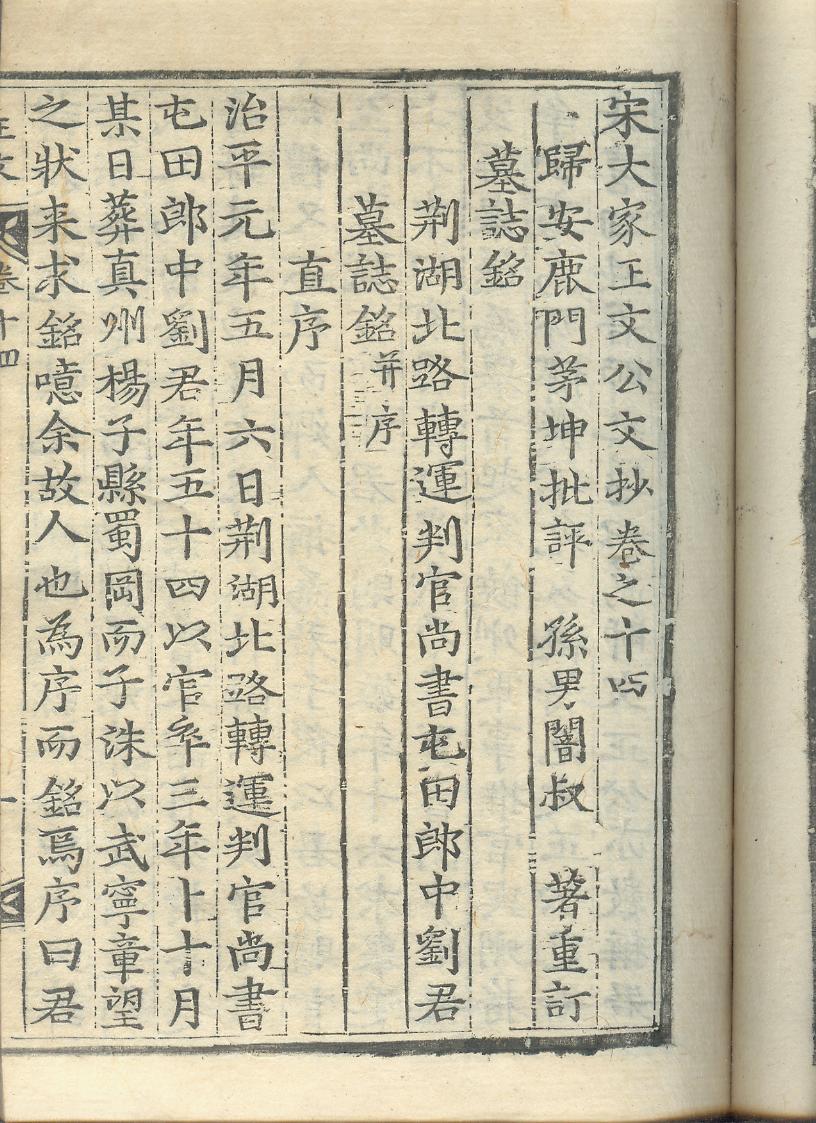 宋大家王文公文抄卷之十四
歸安鹿門茅坤批評　孫男闇叔　著重訂
墓誌銘
荆湖北路轉運判官尚書屯田郎中劉君
墓誌銘并序
直序
治平元年五月六日荆湖北路轉運判官尚書
屯田郎中劉君年五十四以官卒三年卜十月
某日葬真州楊子縣蜀岡而子洙以武寧章望
之狀来求銘噫余故人也為序而銘焉序曰君
王文　卷十四　一